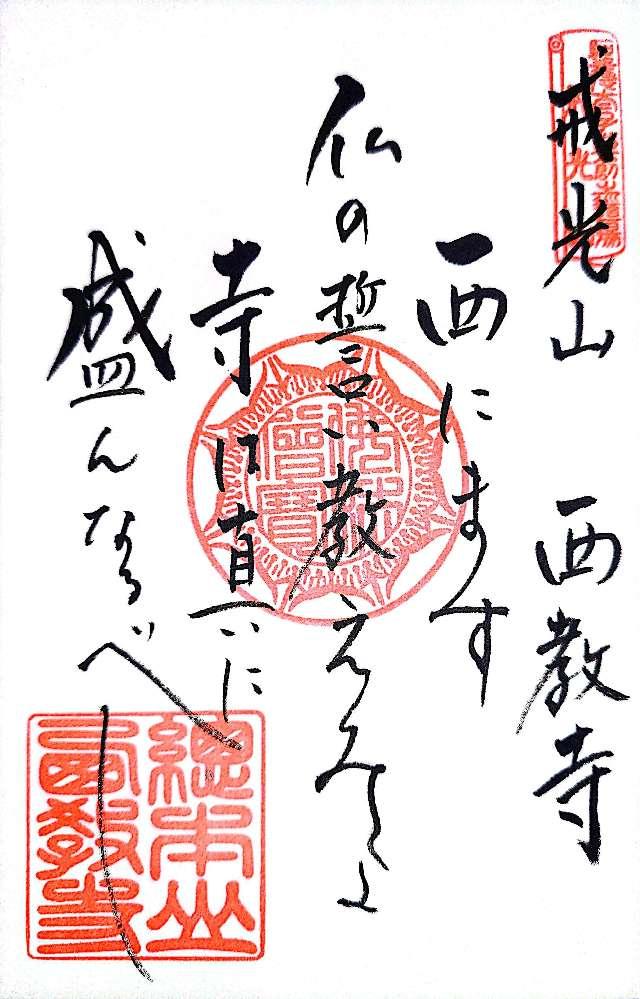 戒光山 西教寺
西にます
仏の誓い教えみ
寺は真に
盛んなるべし
佛法僧寶
總本山西教寺